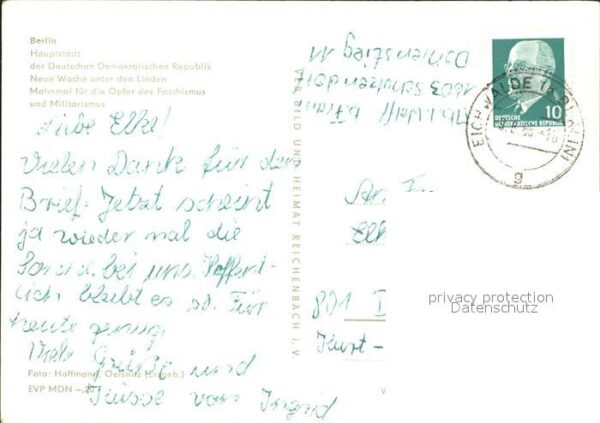 Berlin
Hauptstadt
der Deutschen Demokratischen Republik
Neue Wache unter den Linden
Mahnmal für die Opfer des Faschismus
und Militarismus
Liebe Elke!
Vielen Dank für den
Brief. Jetzt scheint
ja wieder mal die
Sonne bei uns. Hoffent-
lich bleibt es so. Für
heute genug
Viele Grüße und
Küsse von Ingrid
Foto: Hoffmann, Oelsnitz (Erzgeb.)
EVP MDN –,20
VEB BILD UND HEIMAT REICHENBACH I. V.
Abs. Wolff b. Fran
1603 Schulzendorf
11
DEUTSCHE
DEMOKRATISCHE REPUBLIK
10
EICHWALDE
g
An
Elk
801 I
Kurt-
privacy protection
Datenschutz